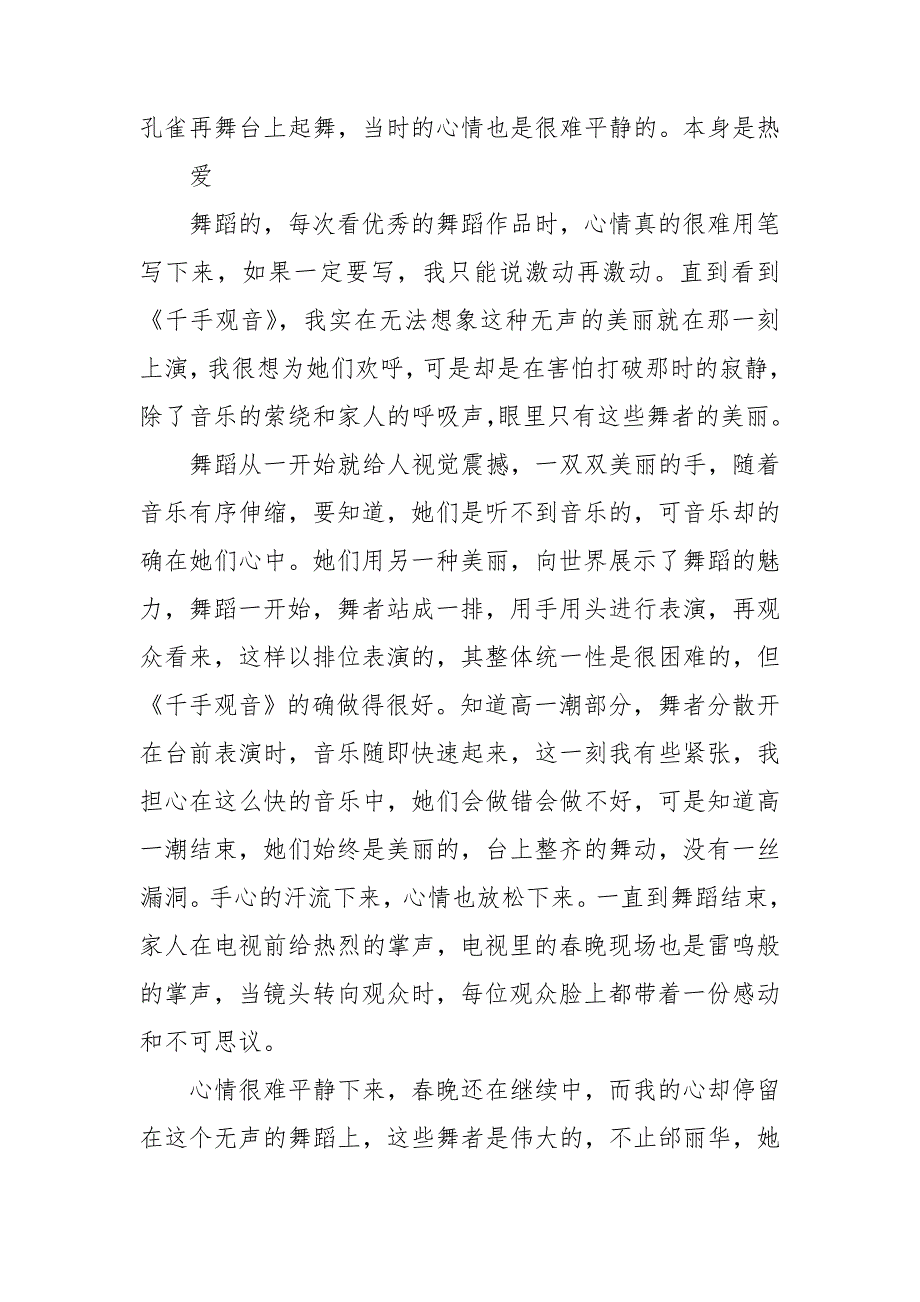 孔雀再舞台上起舞，当时的心情也是很难平静的。本身是热
爱
舞蹈的，每次看优秀的舞蹈作品时，心情真的很难用笔
写下来，如果一定要写，我只能说激动再激动。直到看到
《千手观音》，我实在无法想象这种无声的美丽就在那一刻
上演，我很想为她们欢呼，可是却是在害怕打破那时的寂静，
除了音乐的萦绕和家人的呼吸声，眼里只有这些舞者的美丽。
舞蹈从一开始就给人视觉震撼，一双双美丽的手，随着
音乐有序伸缩，要知道，她们是听不到音乐的，可音乐却的
确在她们心中。她们用另一种美丽，向世界展示了舞蹈的魅
力，舞蹈一开始，舞者站成一排，用手用头进行表演，再观
众看来，这样以排位表演的，其整体统一性是很困难的，但
《千手观音》的确做得很好。知道高一潮部分，舞者分散开
在台前表演时，音乐随即快速起来，这一刻我有些紧张，我
担心在这么快的音乐中，她们会做错会做不好，可是知道高
一潮结束，她们始终是美丽的，台上整齐的舞动，没有一丝
漏洞。手心的汗流下来，心情也放松下来。一直到舞蹈结束，
家人在电视前给热烈的掌声，电视里的春晚现场也是雷鸣般
的掌声，当镜头转向观众时，每位观众脸上都带着一份感动
和不可思议。
心情很难平静下来，春晚还在继续中，而我的心却停留
在这个无声的舞蹈上，这些舞者是伟大的，不止邰丽华，她